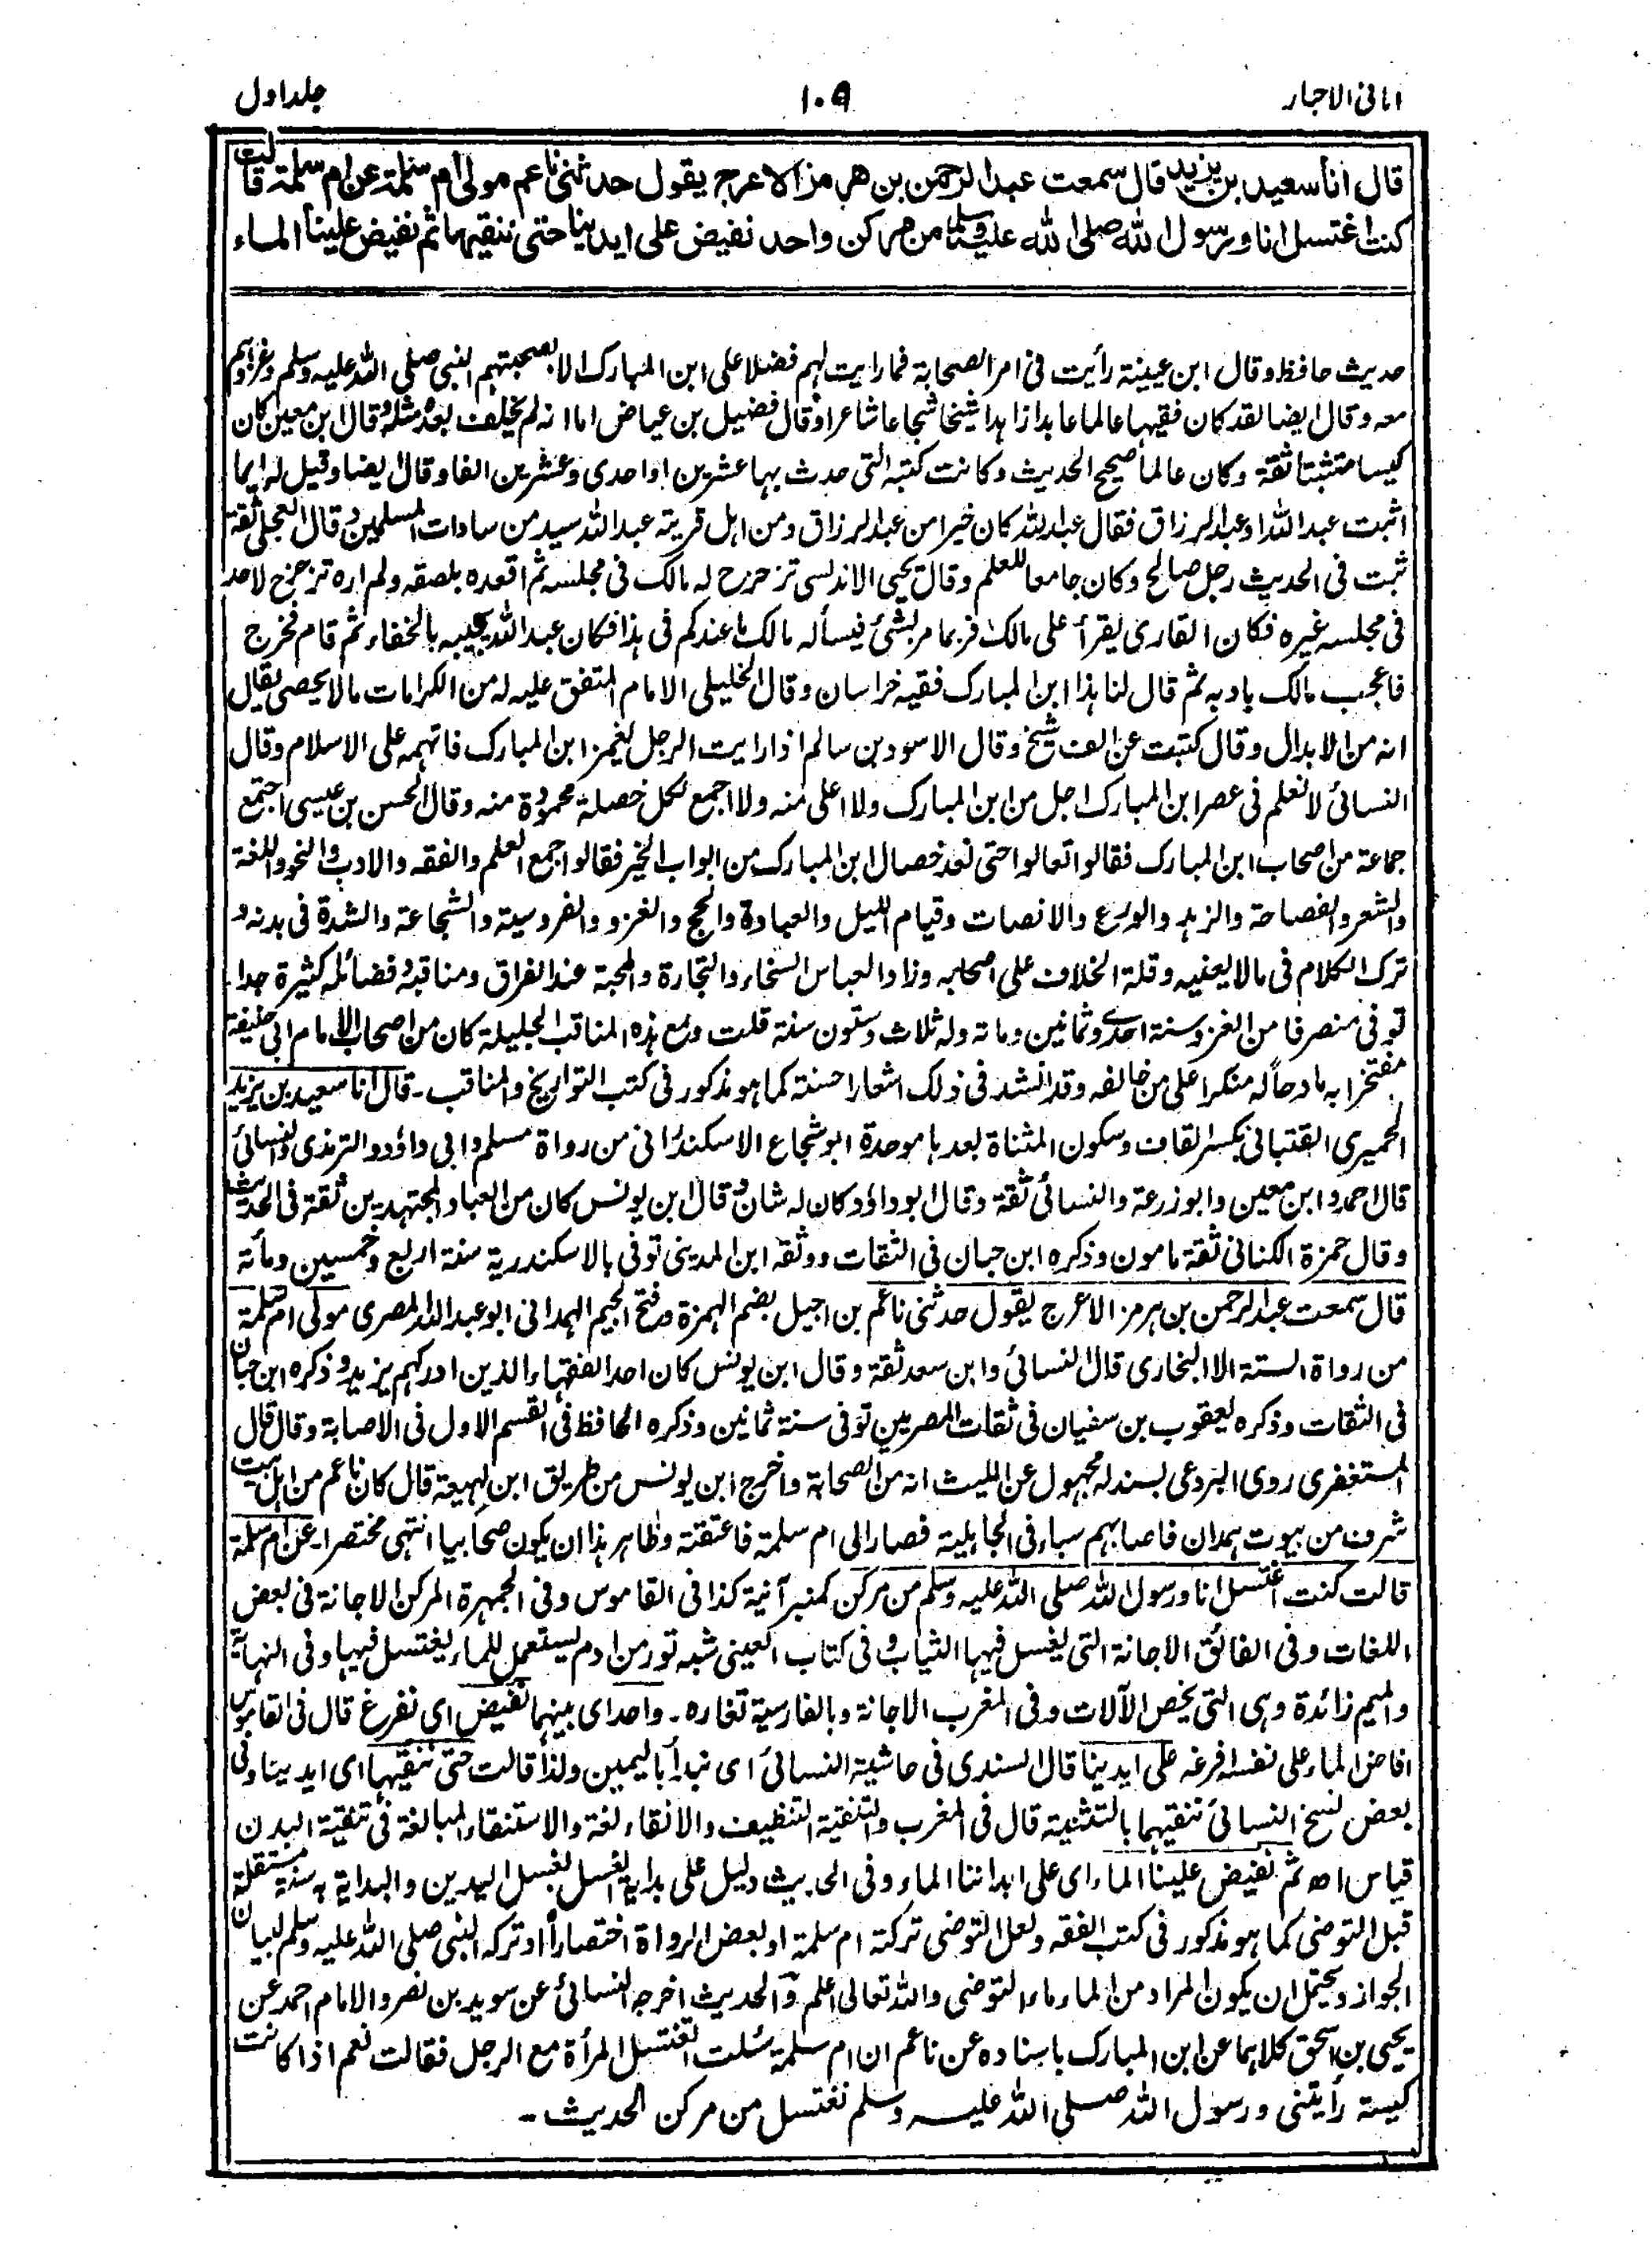 امانی الاحبار
۱۰۹
جلد اول
قال انا سعيد بن يزيد قال سمعت عبد الرحمن بن هرمز الاعرج يقول حدثنی ناعم مولى ام سلمة عن ام سلمة قالت
كنت اغتسل انا ورسول الله صلى الله عليه وسلم من مركن واحد نفيض على ايدينا حتى ننقيها ثم نفيض علينا الماء
حدیث حافظ وقال ابن عيينة رأيت فی امر الصحابة فما رايت لهم فضلا على ابن المبارك الا بصحبتهم النبی صلى الله عليه وسلم وغزوهم
معه وقال ايضا لقد كان فقيها عالما عابدا زاهدا شيخا شجاعا شاعرا وقال فضيل بن عياض اما انه لم يخلف بعده مثله وقال ابن معين كان
كيسا متثبتا ثقة وكان عالما صحيح الحديث وكانت كتبه التی حدث بها عشرين او احدى وعشرين الفا وقال ايضا وقيل له ايما
اثبت عبد الله او عبد الرزاق فقال عبد الله كان خيرا من عبد الرزاق ومن اهل قريته عبد الله سيد من سادات المسلمين وقال العجلی ثقة
ثبت فی الحديث رجل صالح وكان جامعا للعلم وقال يحيى الاندلسی تزحزح له مالك فی مجلسه ثم اقعده بلصقه ولم اره تزحزح لاحد
فی مجلسه غيره فكان القاری يقرأ على مالك فربما مر بشئ فيسأله مالك ما عندكم فی هذا فكان عبد الله يجيبه بالخفاء ثم قام فخرج
فاعجب مالك بادبه ثم قال لنا هذا ابن المبارك فقيه خراسان وقال الخليلی الامام المتفق عليه له من الكرامات مالا يحصى يقال
انه من الابدال وقال كتبت عن الف شيخ وقال الاسود بن سالم اذا رايت الرجل يغمز ابن المبارك فاتهمه على الاسلام وقال
النسائی لا نعلم فی عصر ابن المبارك اجل من ابن المبارك ولا اعلى منه ولا اجمع لكل خصلة محمودة منه وقال الحسن بن عيسى اجتمع
جماعة من اصحاب ابن المبارك فقالوا تعالوا حتى نعد خصال ابن المبارك من ابواب الخير فقالوا جمع العلم والفقه والادب والنحو واللغة
والشعر والفصاحة والزهد والورع والانصات وقيام الليل والعبادة والحج والغزو والفروسية والشجاعة والشدة فی بدنه و
ترك الكلام فی مالا يعنيه وقلة الخلاف على اصحابه وزاد العباس السخاء والتجارة والمحبة عند الفراق ومناقبه وفضائله كثيرة جدا
توفی منصرفا من الغزو سنة احدى وثمانين ومائة وله ثلاث وستون سنة قلت ومع هذه المناقب الجليلة كان من اصحاب الامام ابی حنيفة
مفتخرا به مادحا له منكرا على من خالفه وقد انشد فی ذلك اشعارا حسنة كما هو مذكور فی كتب التواريخ والمناقب ۔ قال انا سعيد بن يزيد
الحميری القتبانی بكسر القاف وسكون المثناة بعدها موحدة ابو شجاع الاسكندرانی من رواة مسلم وابی داؤد والترمذی والنسائی
قال احمد وابن معين وابو زرعة والنسائی ثقة وقال ابو داؤد كان له شان وقال ابن يونس كان من العباد المجتهدين ثقة فی الحديث
وقال حمزة الكنانی ثقة مامون وذكره ابن حبان فی الثقات ووثقه ابن المدينی توفی بالاسكندرية سنة اربع وخمسين ومأئة
قال سمعت عبد الرحمن بن هرمز الاعرج يقول حدثنی ناعم بن اجيل بضم الهمزة وفتح الجيم الهمدانی ابو عبد الله المصری مولى ام سلمة
من رواة الستة الا البخاری قال النسائی وابن سعد ثقة وقال ابن يونس كان احد الفقهاء الذين ادركهم يزيد وذكره ابن حبان
فی الثقات وذكره يعقوب بن سفيان فی ثقات المصريين توفی سنة ثمانين وذكره الحافظ فی القسم الاول فی الاصابة وقال قال
المستغفری روى البردعی بسند له مجهول عن الليث انه من الصحابة واخرج ابن يونس من طريق ابن لهيعة قال كان ناعم من اهل بيت
شرف من بيوت همدان فاصابهم سباء فی الجاهلية فصار الى ام سلمة فاعتقته وظاهر هذا ان يكون صحابيا انتهى مختصرا ۔ عن ام سلمة
قالت كنت اغتسل انا ورسول الله صلى الله عليه وسلم من مركن كمنبر آنية كذا فی القاموس وفی الجمهرة المركن الاجانة فی بعض
اللغات وفی الفائق الاجانة التی يغسل فيها الثياب وفی كتاب العينی شبه تور من ادم يستعمل للماء يغتسل فيها وفی النهاية
والميم زائدة وهی التی يخص الآلات وفی المغرب الاجانة وبالفارسية تغاره ۔ واحد ای بينهما نفيض ای نفرغ قال فی القاموس
افاض الماء على نفسه افرغه على ايدينا قال السندی فی حاشية النسائی ای نبدأ باليمين ولذا قالت حتى ننقيها ای ايدينا وفی
بعض نسخ النسائی ننقيهما بالتثنية قال فی المغرب والتنقية التنظيف والانقاء لغة والاستنقاء المبالغة فی تنقية البدن
قياس اھ ثم نفيض علينا الماء ای على ابداننا الماء وفی الحديث دليل على بداية الغسل بغسل اليدين والبداية به سنة مستقلة
قبل التوضی كما هو مذكور فی كتب الفقه ولعل التوضی تركته ام سلمة او بعض الرواة اختصارا او تركه النبی صلى الله عليه وسلم لبيان
الجواز ويحتمل ان يكون المراد من الماء ماء التوضی والله تعالى اعلم والحديث اخرجه النسائی عن سويد بن نصر والامام احمد عن
يحيى بن اسحق كلاهما عن ابن المبارك باسناده عن ناعم ان ام سلمة سئلت اتغتسل المرأة مع الرجل فقالت نعم اذا كانت
كيسة رأيتنی ورسول الله صلى الله عليه وسلم نغتسل من مركن الحديث ۔